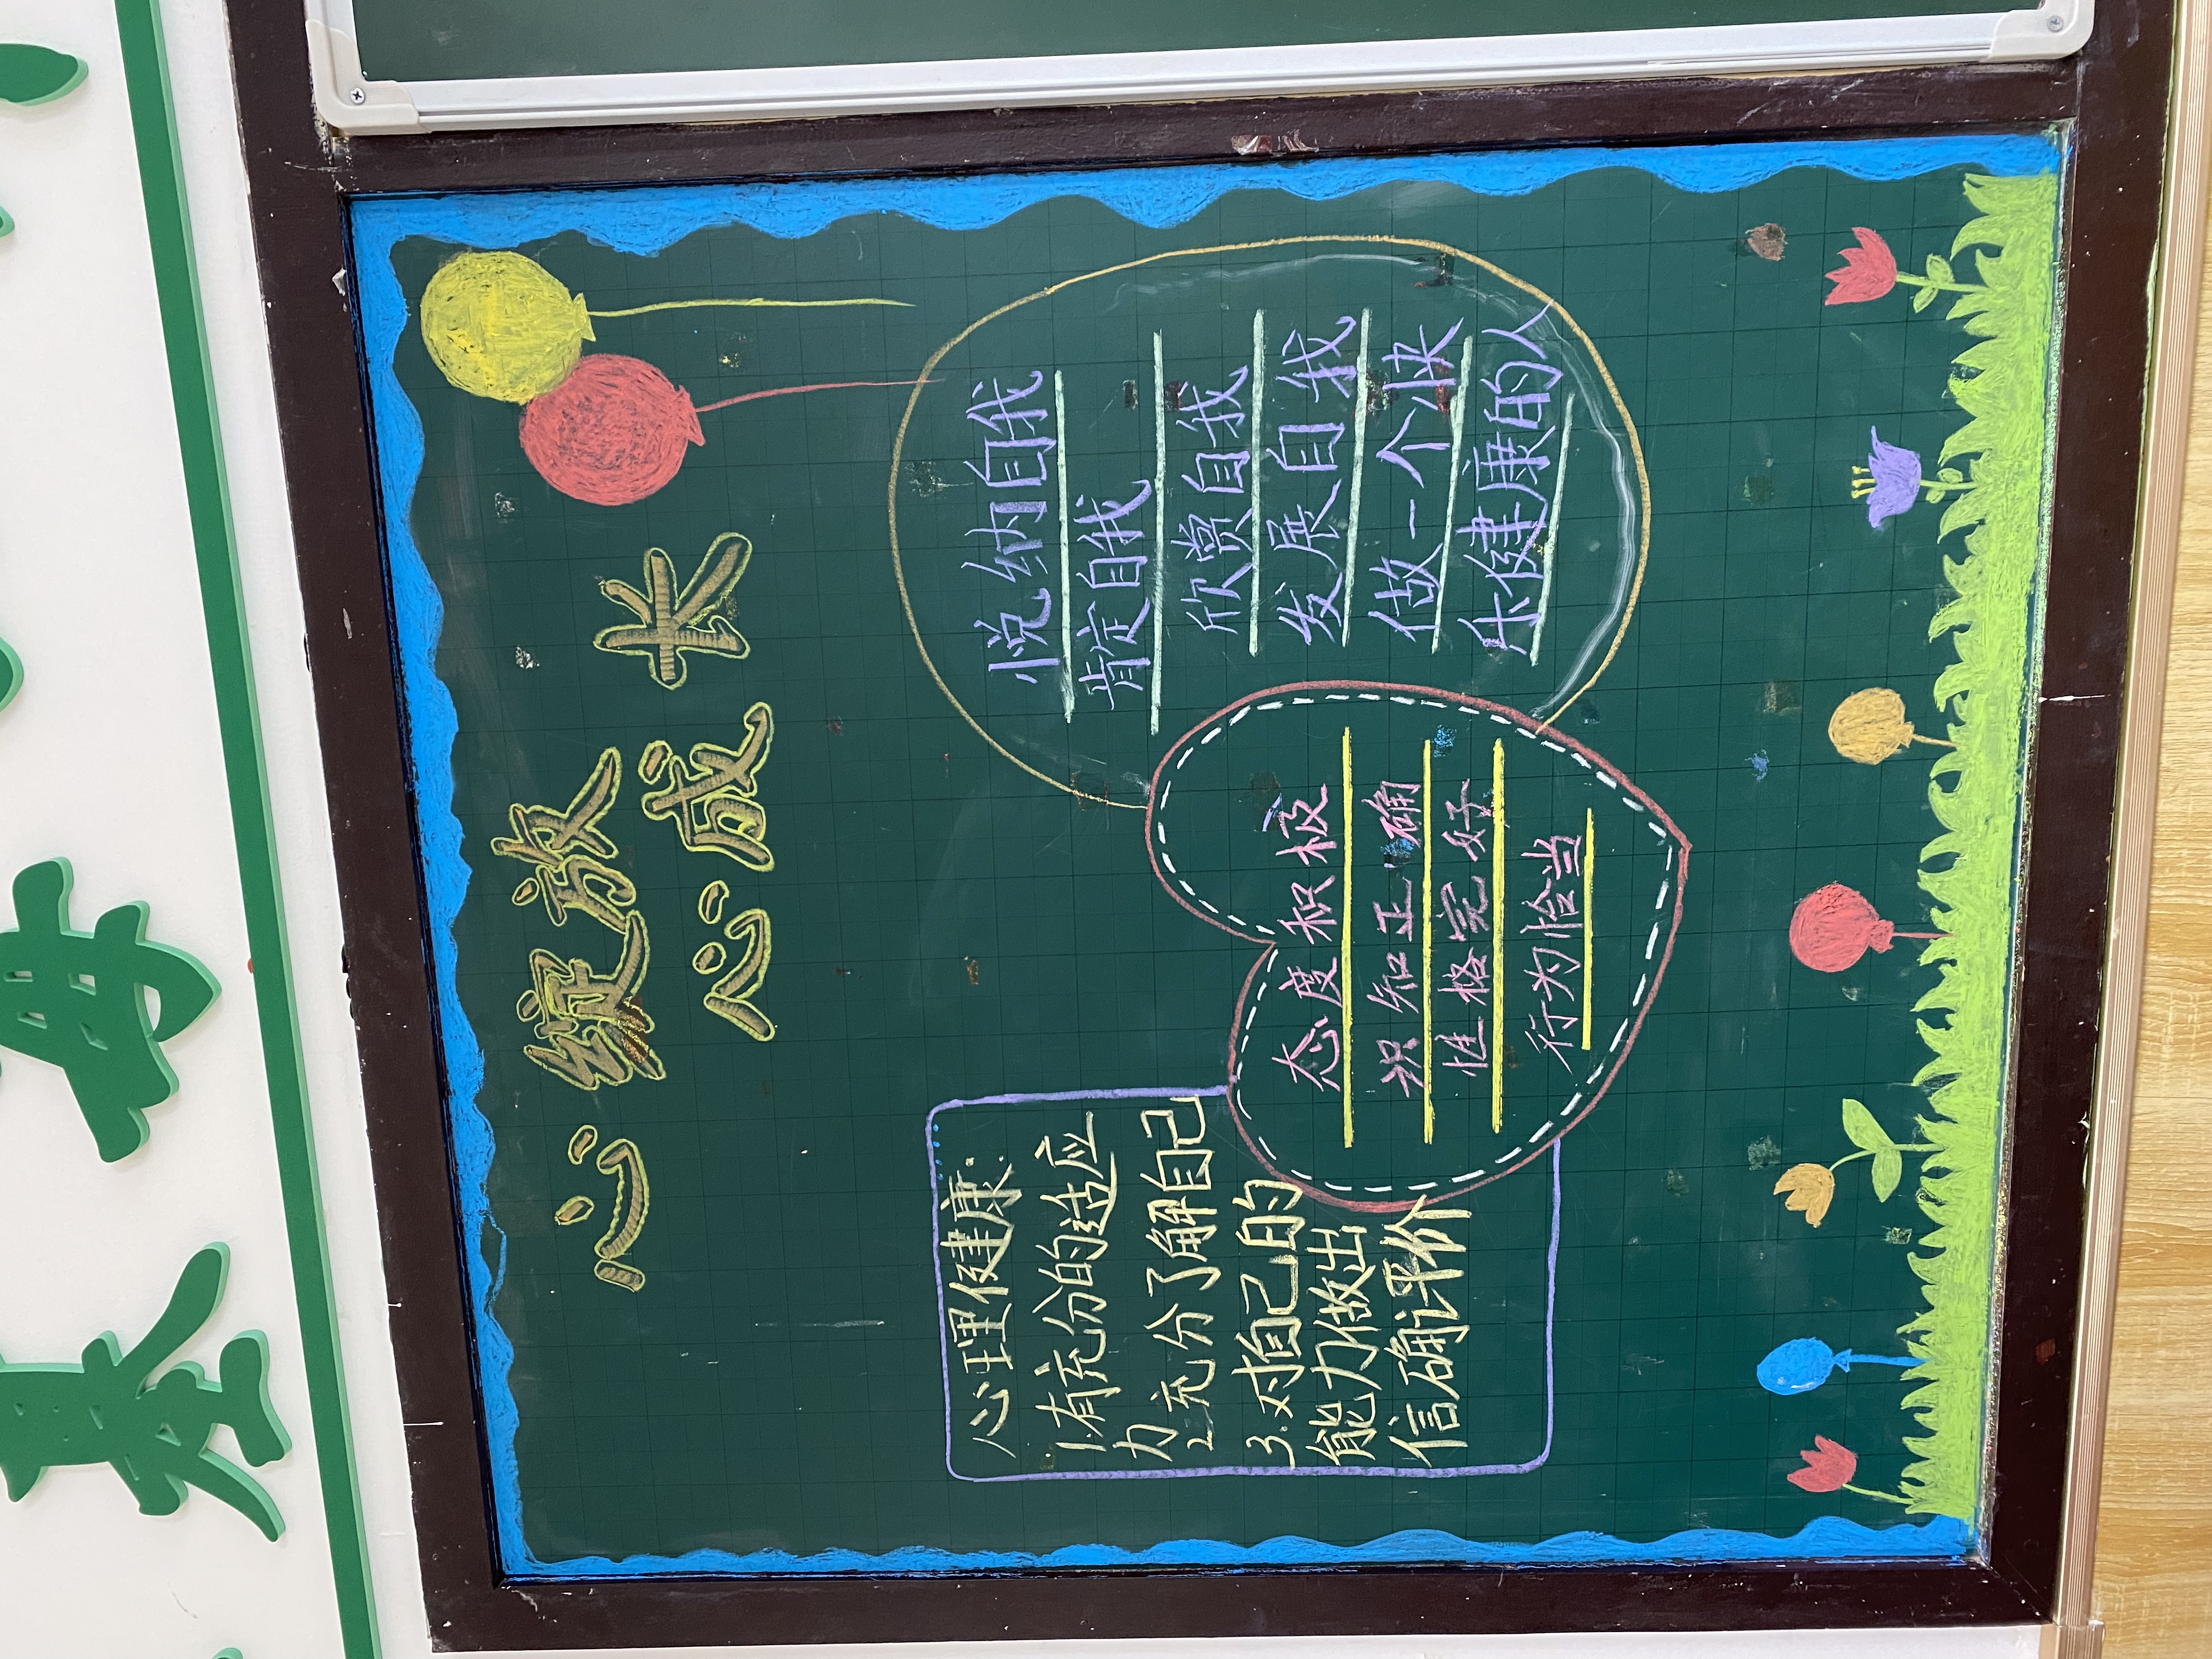 心绽放
心成长
心理健康:
1.有充分的适应
力
2.充分了解自己
3.对自己的
能力做出
信确评价
态度积极
识知正确
性格完好
行为恰当
悦纳自我
肯定自我
欣赏自我
发展自我
做一个快
乐健康的人